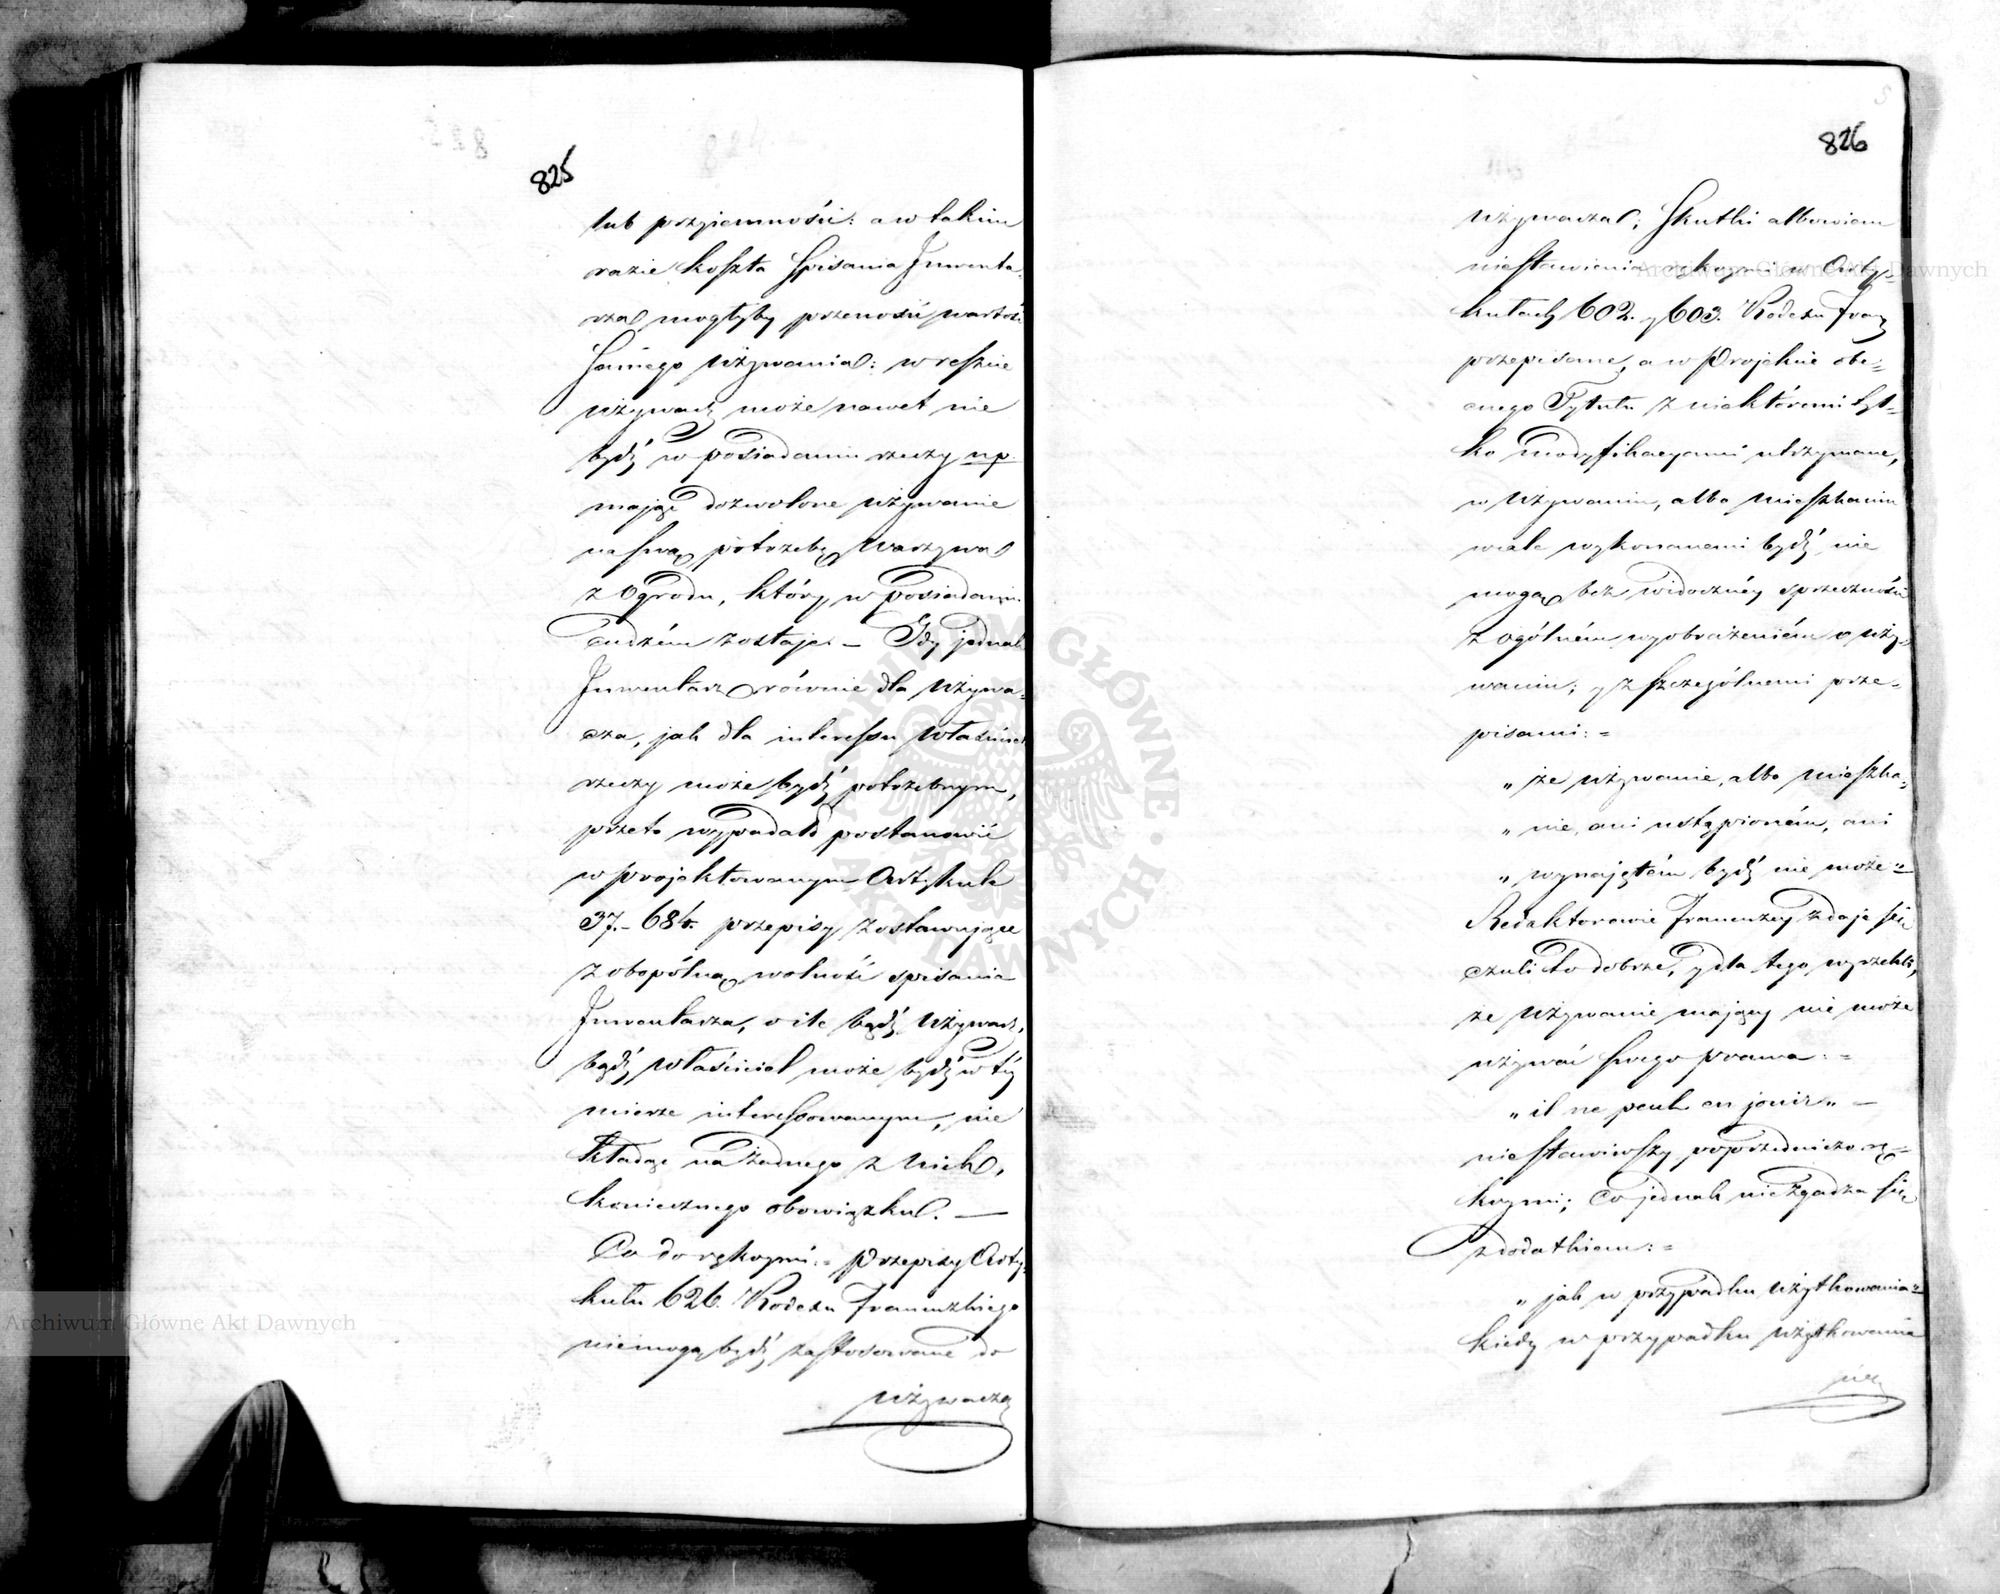 825
lub przyiemności: a w takim
razie koszta spisania Inwenta-
rza mogłyby przenosić wartość
samego używania: w reszcie
używacz może nawet nie
bydź w posiadaniu rzeczy np.
mając dozwolone używanie
na swą potrzebę warzywa
z Ogrodu, który w posiadaniu
cudzém zostaje. — Gdy jednak
Inwentarz równie dla używa-
cza, jak dla interessu właściciela
rzeczy może bydź potrzebnym,
przeto wypadało postanowić
w projektowanym Artykule
37.–684. przepisy zostawujące
zobopólną wolność spisania
Inwentarza, o ile bądź używacz,
bądź właściciel może bydź w téj
mierze interessowanym, nie
kładąc na żadnego z nich,
koniecznego obowiązku. —
Co do rękoymi:= Przepisy Arty-
kułu 626. Kodexu Francuzkiego
niemogą bydź zastosowane do
używacza
826
używacza; Skutki albowiem
niestawienia rękoymi w Arty-
kułach 602. y 603. Kodexu Franc
przepisane, a w Projekcie obe-
cnego Tytułu z niektóremi tyl-
ko modyfikacyami utrzymane,
w używaniu, albo mieszkaniu
wcale wykonanemi bydź nie
mogą bez widocznéy sprzeczności
z ogólném wyobrażeniém o uży-
waniu; y z szczególnemi prze-
pisami:=
„ że używanie, albo mieszka-
„ nie, ani ustąpioném, ani
„ wynajętém bydź nie może=
Redaktorowie Francuzcy zdaje się
czuli to dobrze, y dla tego wyrzekli,
że używanie mający nie może
używać swego prawa:=
„ il ne peut en jouir „ —
niestawiwszy poprzedniczo rę-
koymi; Co jednak niezgadza się
z dodatkiem:=
„ jak w przypadku użytkowania=
kiedy w przypadku użytkowania
Archiwum Główne Akt Dawnych
Archiwum Główne Akt Dawnych
ARCHIWUM GŁÓWNE AKT DAWNYCH